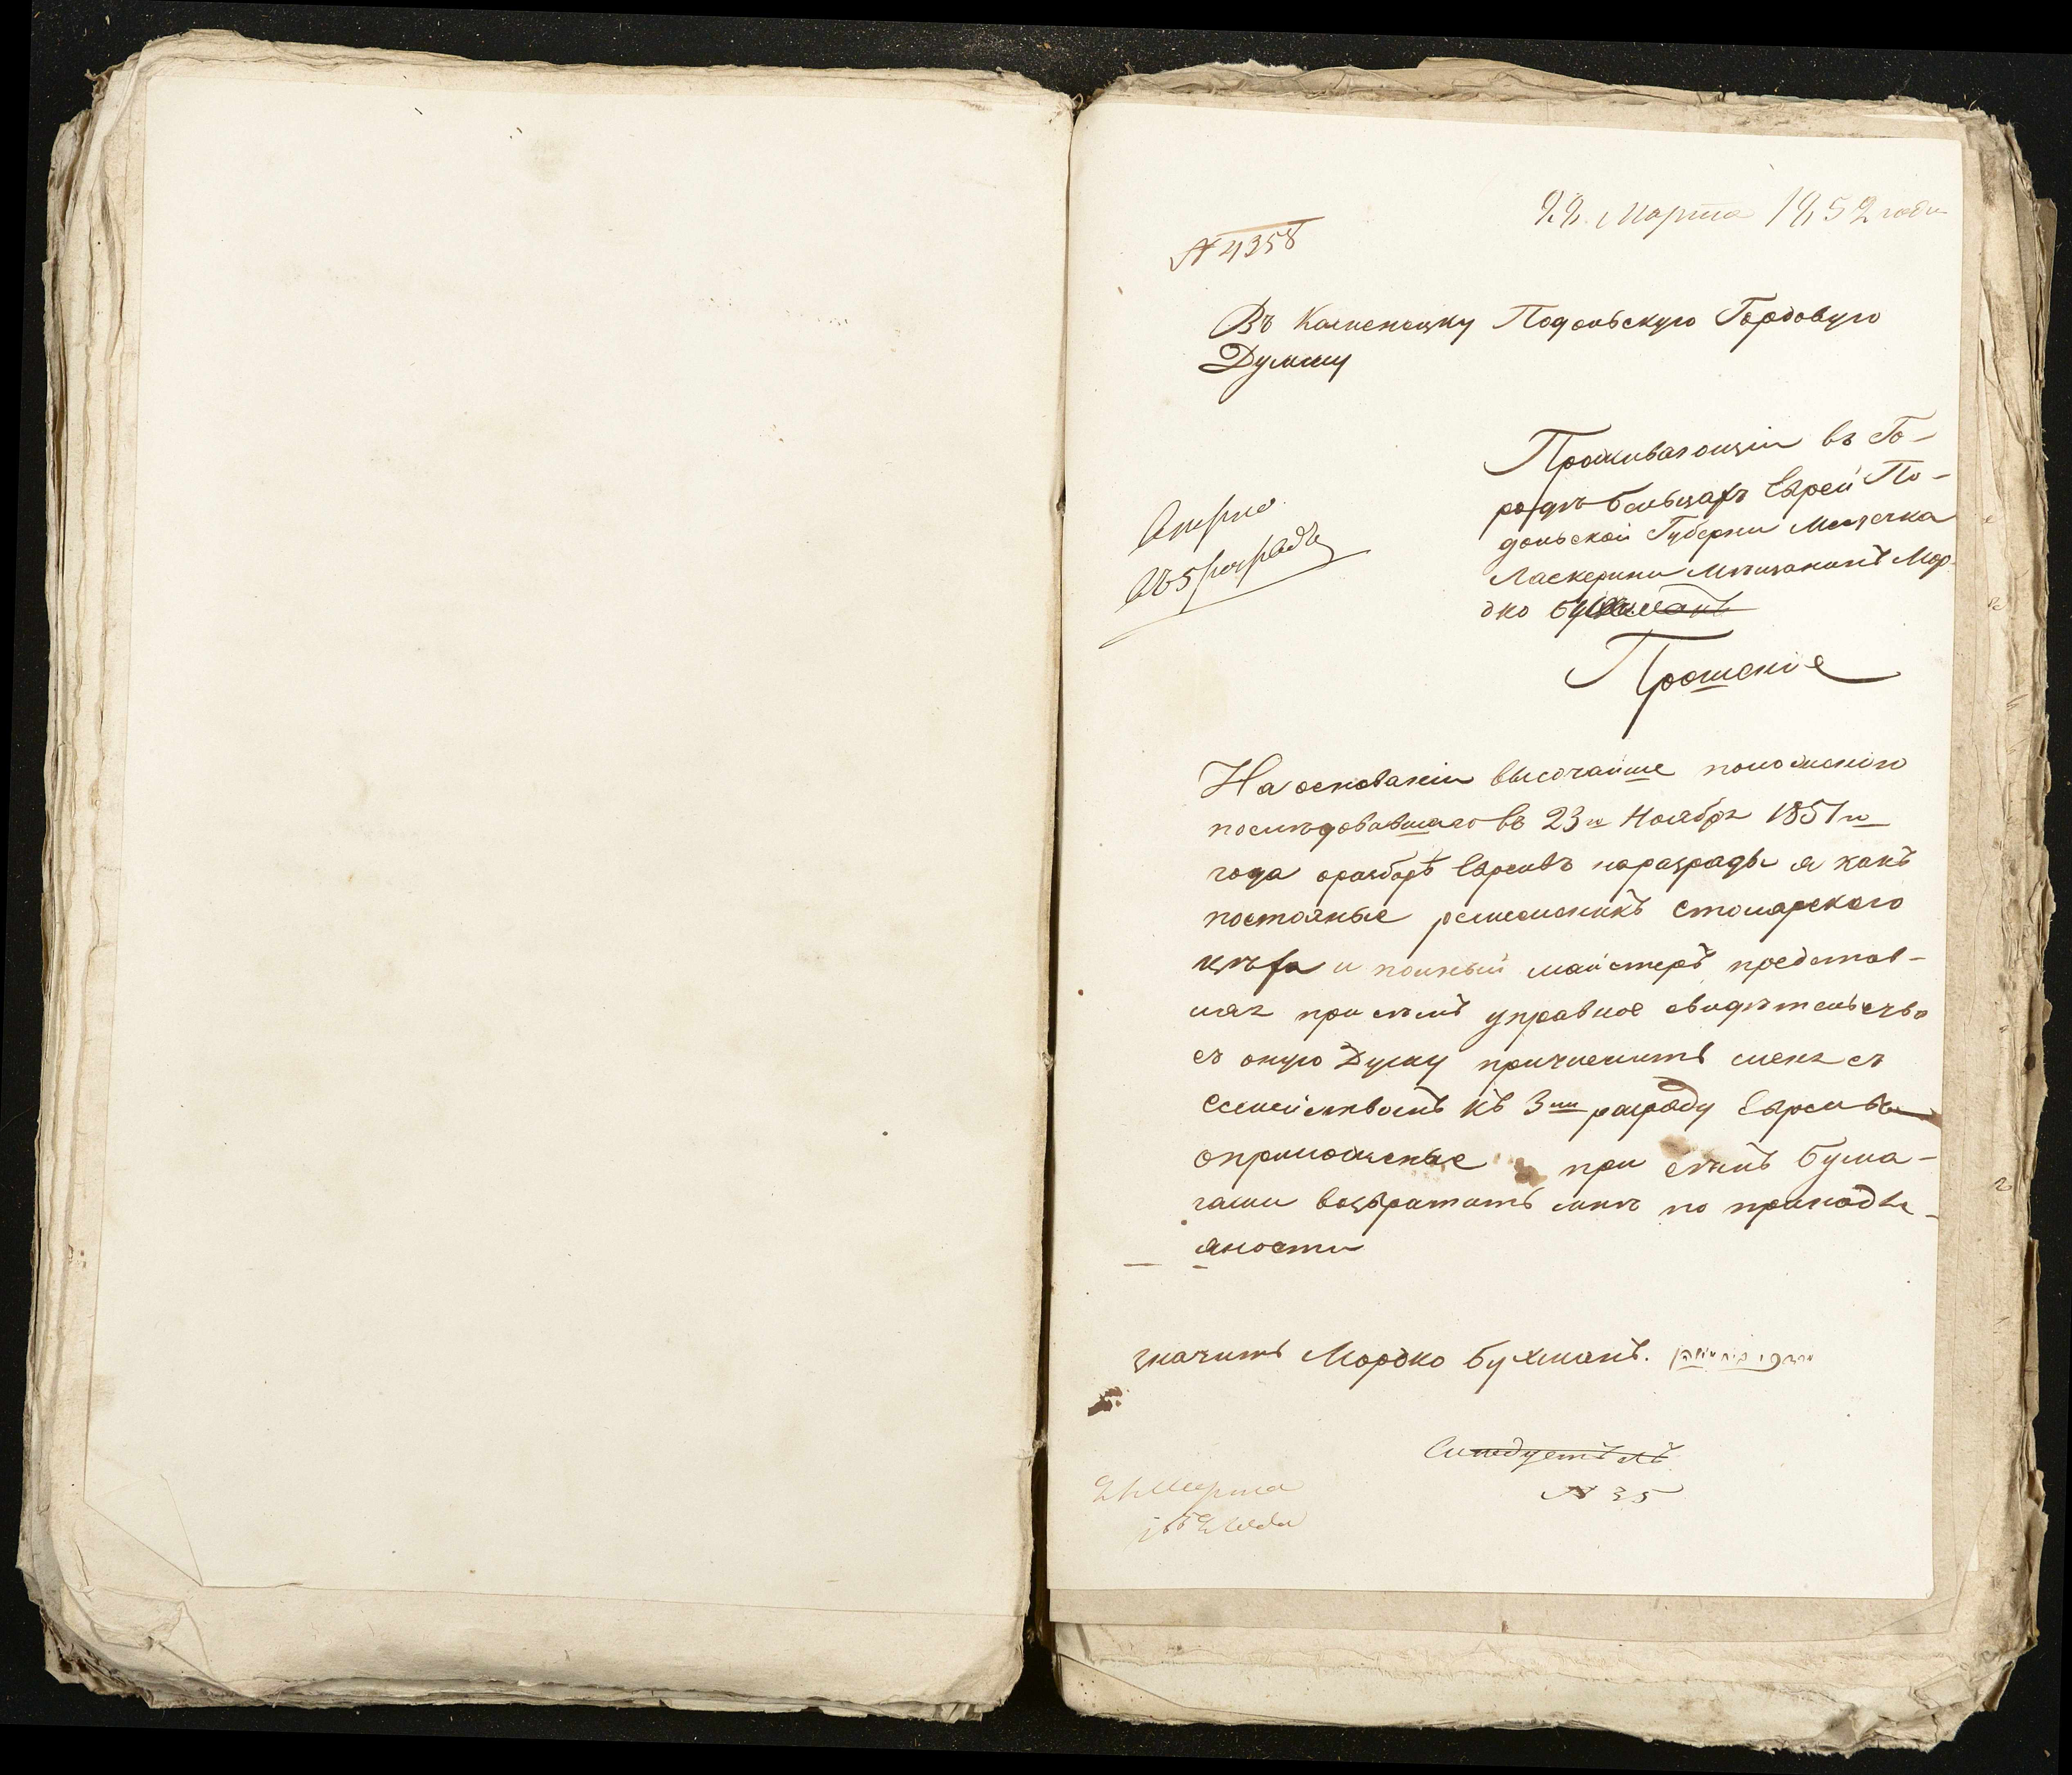 22. Марта 1852 года
№ 4358
Въ Каменецку Подольскую Гордовую
Думу
Проживающій въ Го-
родѣ Бельцахъ Еврей По-
дольской Губерни Мистечка
мѣщанинъ Мор
дко Бухманъ
въ 5 разрядъ
Прошеніе
На основаніи высочайше положенію
последовавшаго въ 23го Ноября 1851го
года оразборѣ Евреивъ поразряды я какъ
постояные ремесленикъ столярского
цѣха и полный майстеръ представ-
ляя при семъ управное свидѣтельсчво
съ оную Думу причислить меня съ
Семействомъ къ 3му разряду Евреивъ
априложеные при сѣмъ бума-
гами возвратить мнѣ по принадле-
жности
значитъ Мордко Бухманъ.
Слѣдуетъ лѣ
№ 35
Марта
1852 года